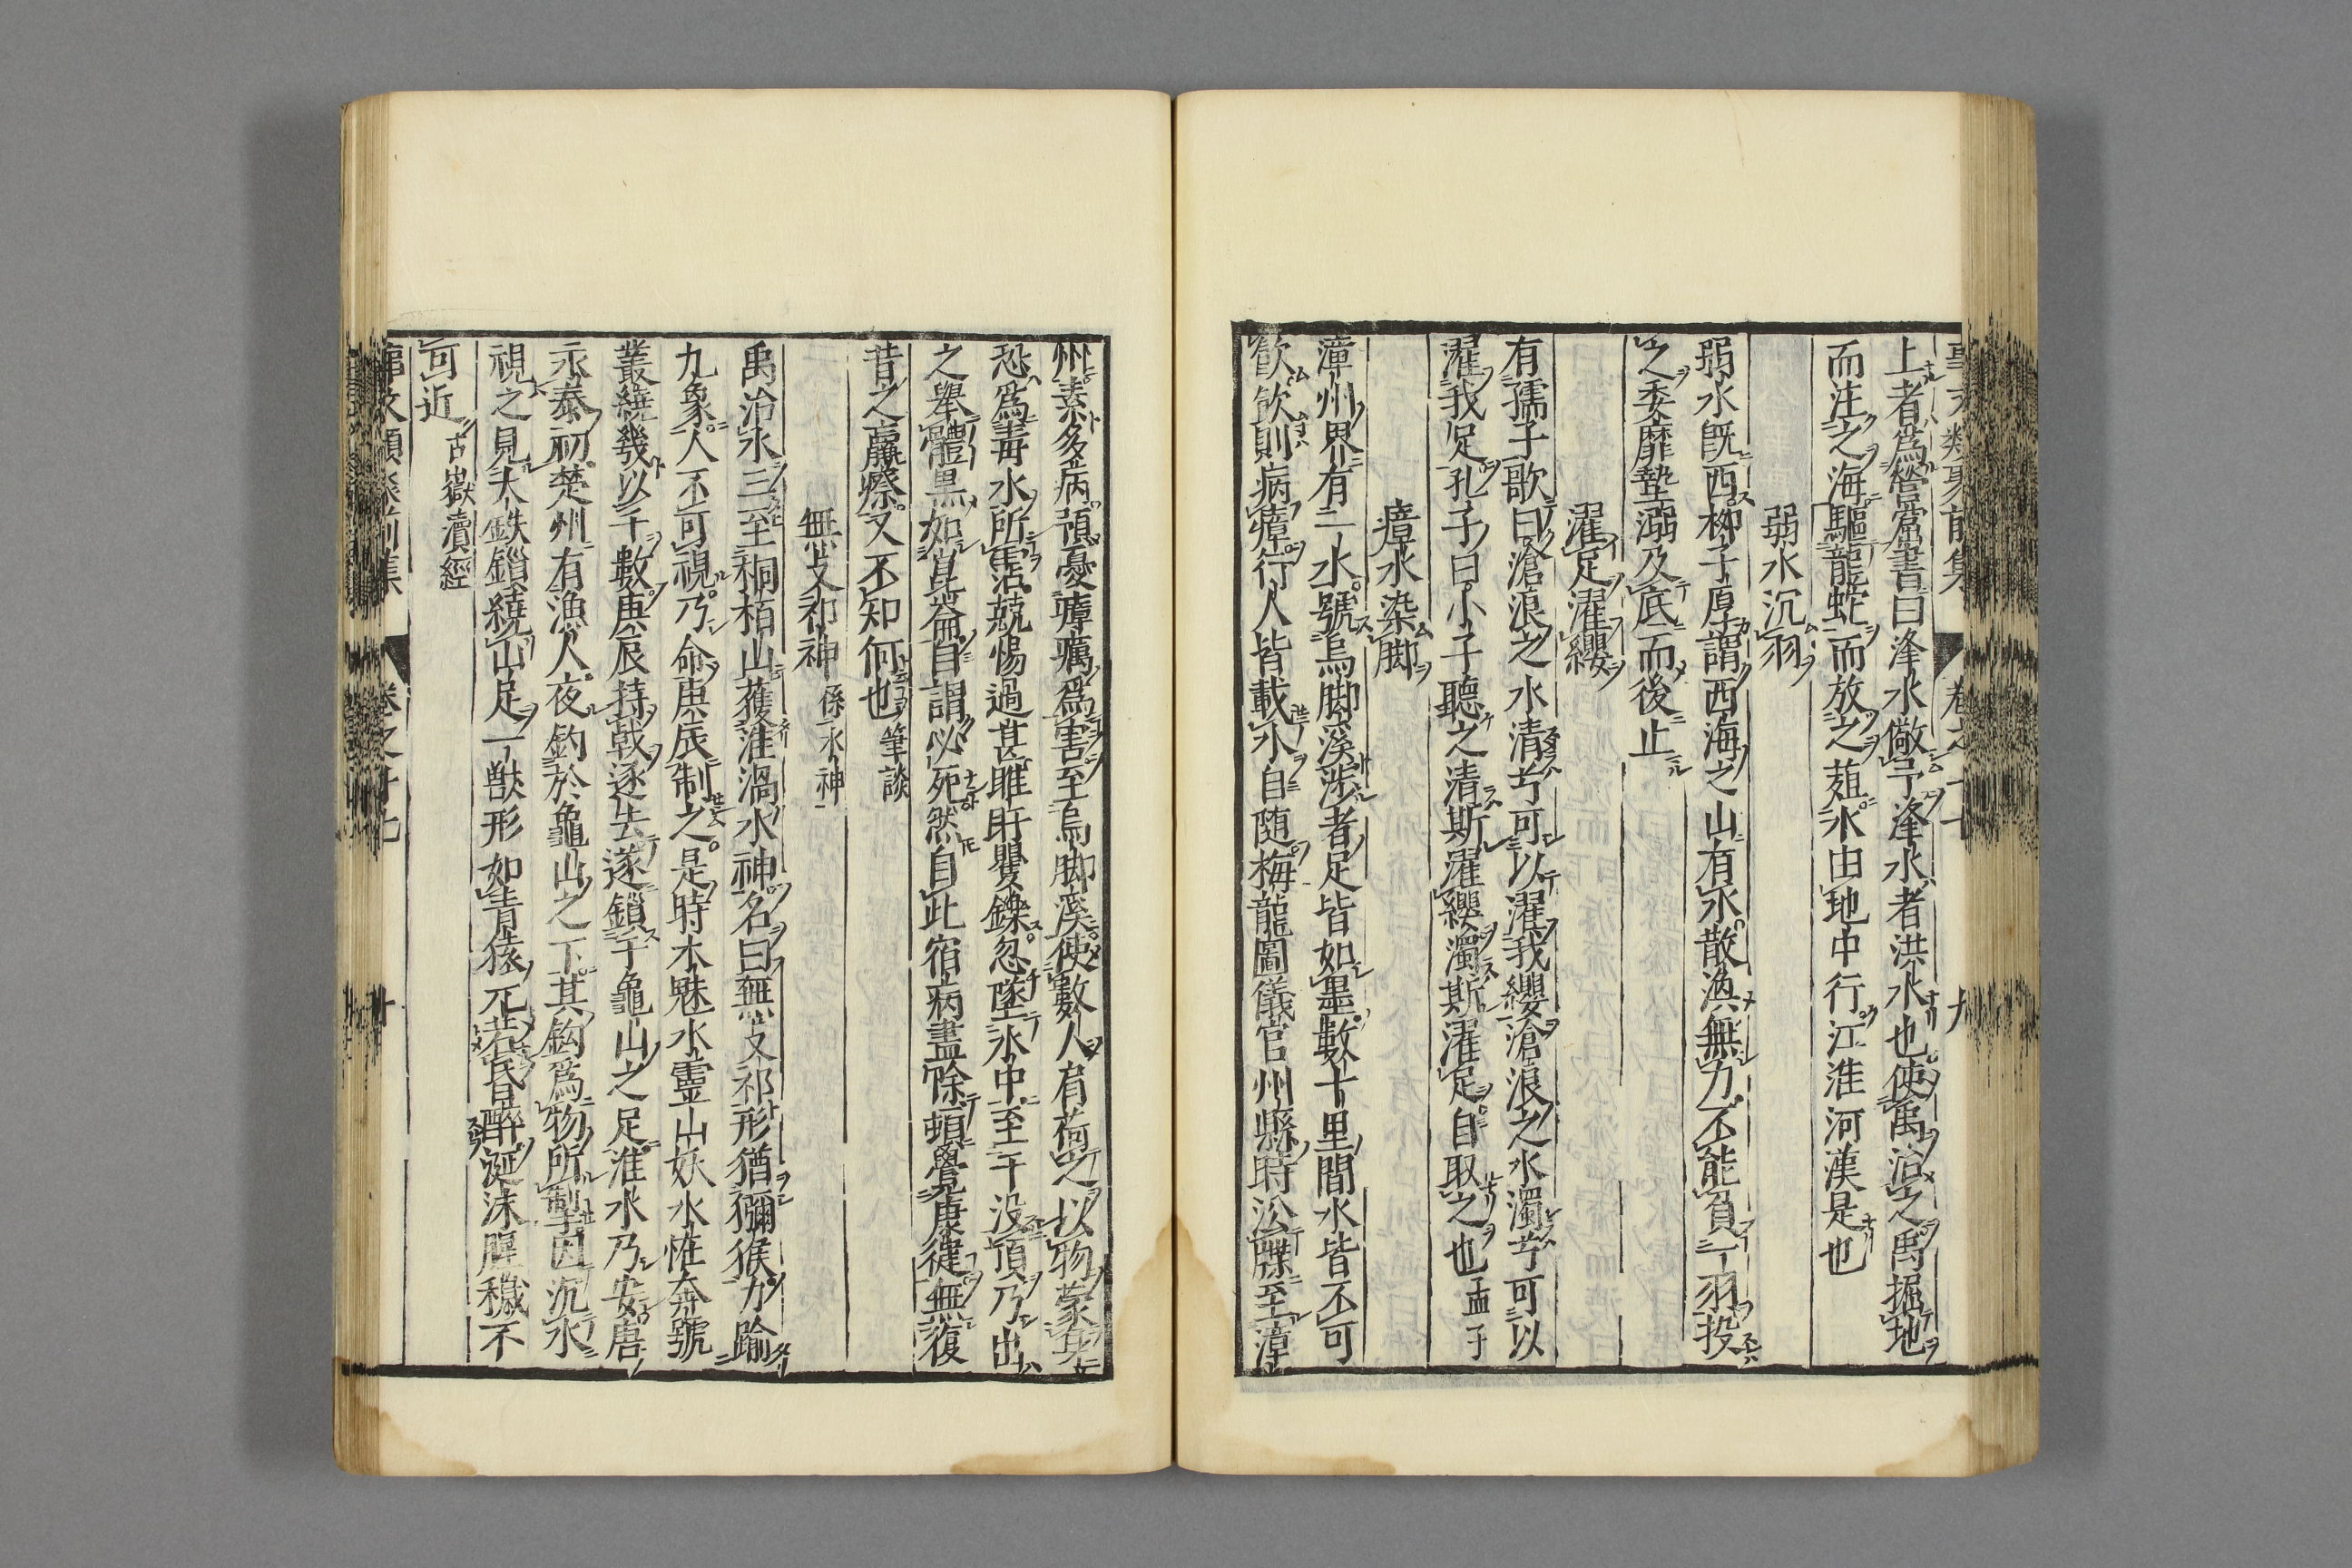 事文類聚前集 卷之十七 九
上者爲營窟書曰洚水儆予洚水者洪水也使禹治之禹掘地
而注之海驅龍蛇而放之菹水由地中行江淮河漢是也
弱水沉羽
弱水既西柳子厚謂西海之山有水散渙無力不能負一羽投
之委靡墊溺及底而後止
濯足濯纓
有孺子歌曰滄浪之水清兮可以濯我纓滄浪之水濁兮可以
濯我足孔子曰小子聽之清斯濯纓濁斯濯足自取之也孟子
瘴水染脚
漳州界有一水號烏脚溪涉者足皆如墨數十里間水皆不可
飲飲則病瘴行人皆載水自随梅龍圖儀官州縣時沿牒至漳
州素多病預憂瘴癘爲害至烏脚溪使數人肩荷之以物蒙身
恐爲毒水所沾兢惕過甚睢盱矍鑠忽墜水中至于没頂乃出
之舉體黒如崑崙自謂必死然自此宿病盡除頓覺康健無復
昔之羸瘵又不知何也筆談
無支祁神係水神
禹治水三至桐栢山獲淮渦水神名曰無支祁形猶獼猴力踰
九象人不可視乃命庚辰制之是時木魅水靈山妖水恠奔號
叢繞幾以千數庚辰持戟逐去遂鎖于龜山之足淮水乃安唐
永泰初楚州有漁人夜釣於龜山之下其鈎爲物所掣因沉水
視之見大鉄鎖繞山足一獣形如青猿兀若昏醉涎沫腥穢不
可近古嶽瀆經
事文類聚前集 卷之十七 十